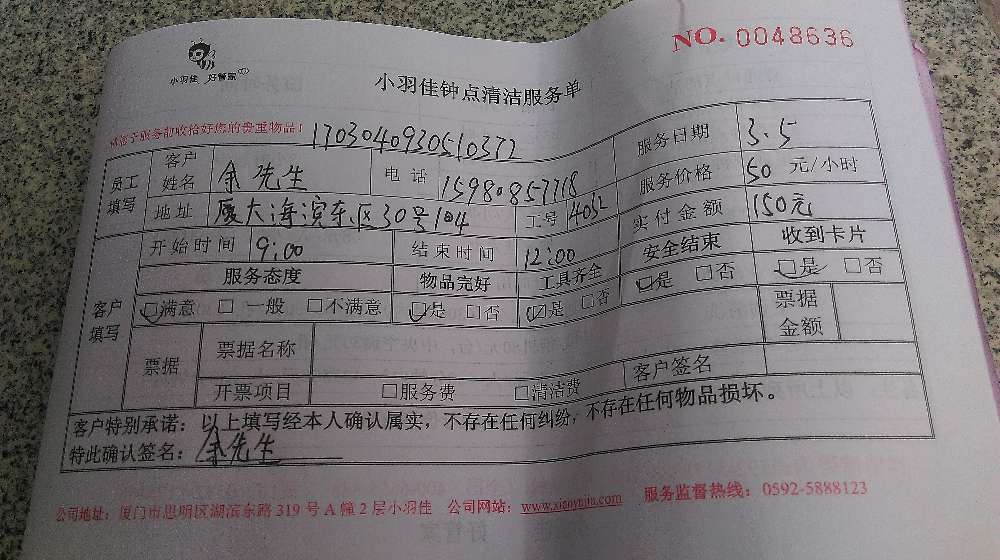 NO. 0048636
小羽佳 好管家
小羽佳钟点清洁服务单
请您于服务前收拾好您的贵重物品！ 1703040930510372
员工填写 客户姓名 余先生 电话 15980857718 服务日期 3.5
服务价格 50 元/小时
地址 厦大海滨东区30号104 工号 4052 实付金额 150元
客户填写 开始时间 9:00 结束时间 12:00 安全结束 收到卡片
服务态度 物品完好 工具齐全 □是 □否 □是 □否
□满意 □一般 □不满意 □是 □否 □是 □否 票据金额
票据 票据名称
开票项目 □服务费 □清洁费 客户签名
客户特别承诺：以上填写经本人确认属实，不存在任何纠纷，不存在任何物品损坏。
特此确认签名：余先生
公司地址：厦门市思明区湖滨东路 319 号 A 幢 2 层小羽佳 公司网站：www.xiaoyujia.com 服务监督热线：0592-5888123